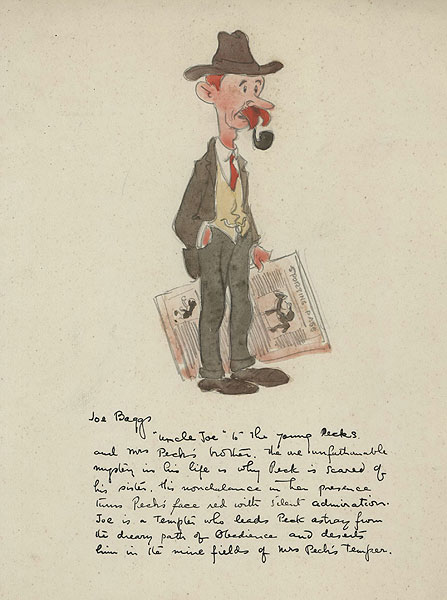 SPORTING PAGE
Joe Baggs
"Uncle Joe" to the young Pecks
and Mrs Peck's brother. The one unfathomable
mystery in his life is why Peck is scared of
his sister. His nonchalance in her presence
turns Peck's face red with silent admiration.
Joe is a Tempter who leads Peck astray from
the dreary path of Obedience and deserts
him in the mine fields of Mrs Peck's Temper.